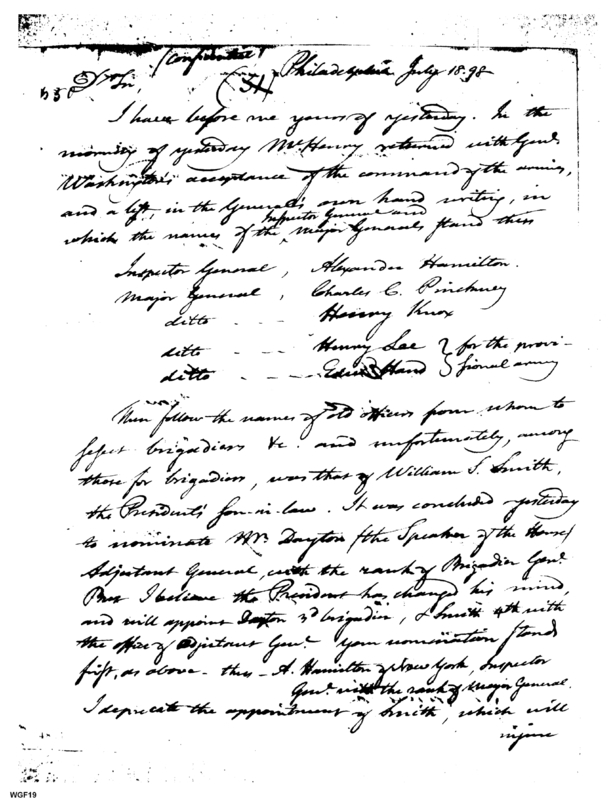 (Confidential)
Philadelphia July 18. 98
Dr Sir, (51)
I have before me yours of yesterday. In the
morning of yesterday McHenry returned with Genl.
Washington's acceptance of the command of the armies,
and a list, in the General's own hand writing, in
Inspector General and
which the names of the Major Generals stand thus
Inspector General, Alexander Hamilton.
Major General, Charles C. Pinckney
ditto - - - Henry Knox
ditto - - - Henry Lee } for the provi-
ditto - - - Edwd Hand } sional army
Then follow the names of old officers from whom to
select brigadiers &c. and unfortunately, among
those for brigadiers, was that of William S. Smith,
the President's son-in-law. It was concluded yesterday
to nominate Mr. Dayton (the Speaker of the House)
Adjutant General, with the rank of Brigadier Genl.
But I believe the President has changed his mind,
and will appoint Dayton 3d brigadier, & Smith 4th with
the office of Adjutant Genl. Your nomination stands
first, as above - thus - A. Hamilton of New York, Inspector
Genl. with the rank of Major General.
I deprecate the appointment of Smith, which will
injure
WGF19